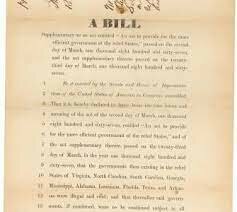 A BILL
Supplementary to an act entitled "An act to provide for the more
efficient government of the rebel States," passed on the second
day of March, one thousand eight hundred and sixty-seven,
and the act supplementary thereto passed on the twenty-
third day of March, one thousand eight hundred and sixty-
seven.
Be it enacted by the Senate and House of Representa-
tives of the United States of America in Congress assembled,
That it is hereby declared to have been the true intent and
meaning of the act of the second day of March, one thousand
eight hundred and sixty-seven, entitled "An act to provide
for the more efficient government of the rebel States," and of
the act supplementary thereto, passed on the twenty-third
day of March, in the year one thousand eight hundred and
sixty-seven, that the governments then existing in the rebel
States of Virginia, North Carolina, South Carolina, Georgia,
Mississippi, Alabama, Louisiana, Florida, Texas, and Arkan-
sas were illegal and void; and that thereafter said govern-
ments, if continued, were to be continued subject in all